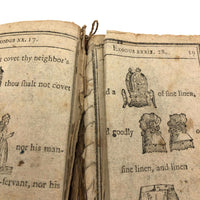 EXODUS XX. 17.
covet thy neighbor's
thou shalt not covet
nor his man-
servant, nor his
EXODUS XXXIX. 28.
and a of fine linen,
goodly of
fine linen, and linen